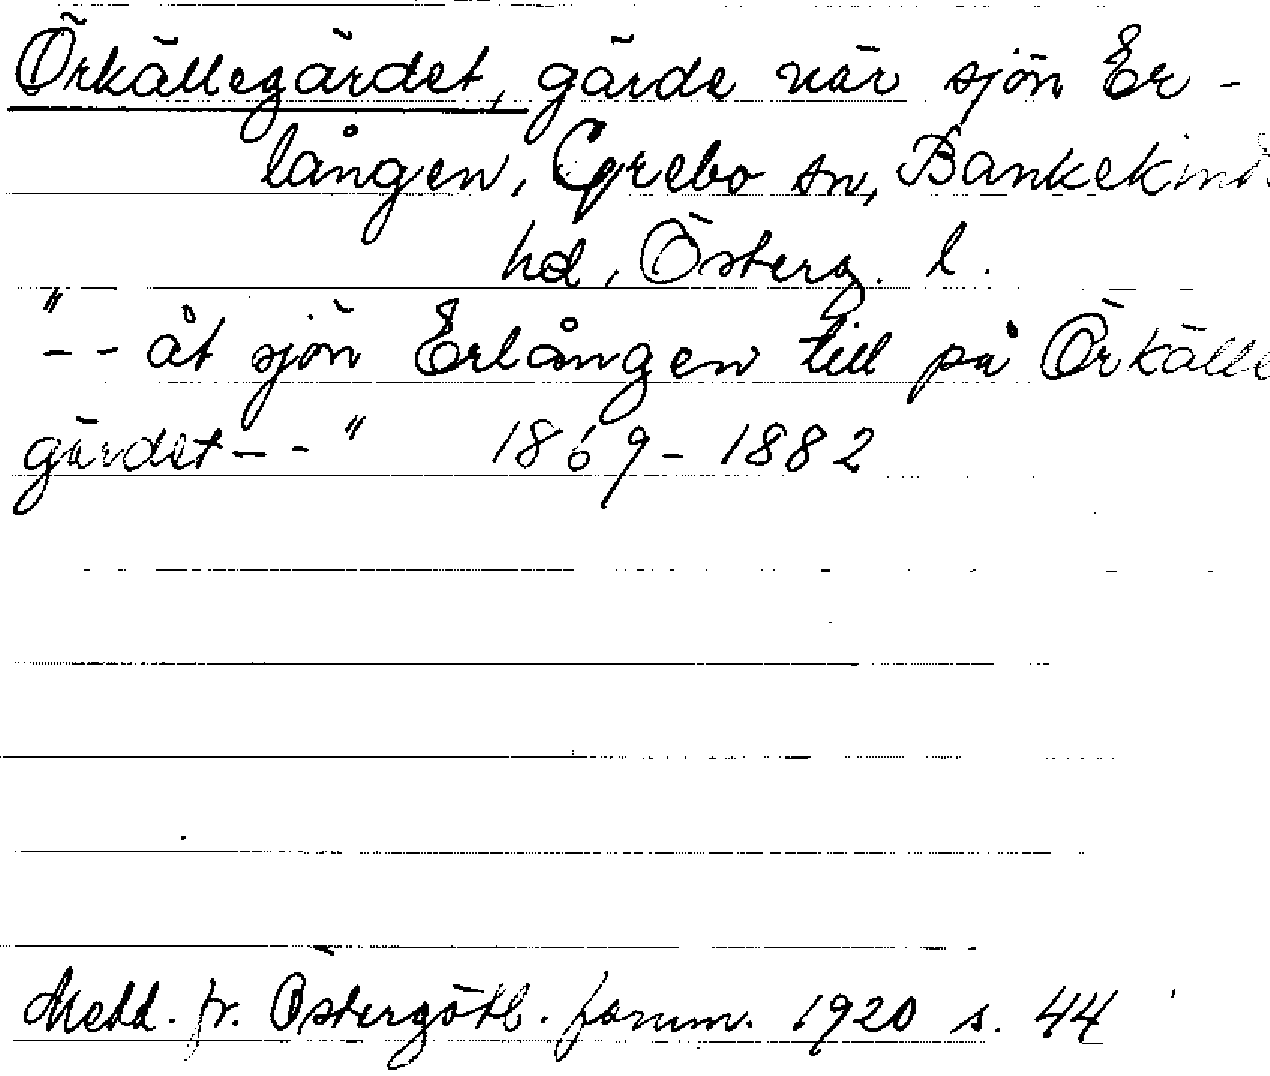 Örkällegärdet, gärde när sjön Er-
lången, Grebo sn, Bankekinds
hd, Österg. l.
"-- åt sjön Erlången till på Örkälle
gärdet -- " 1869-1882
Medd. fr. Östergötl. fornm. 1920 s. 44